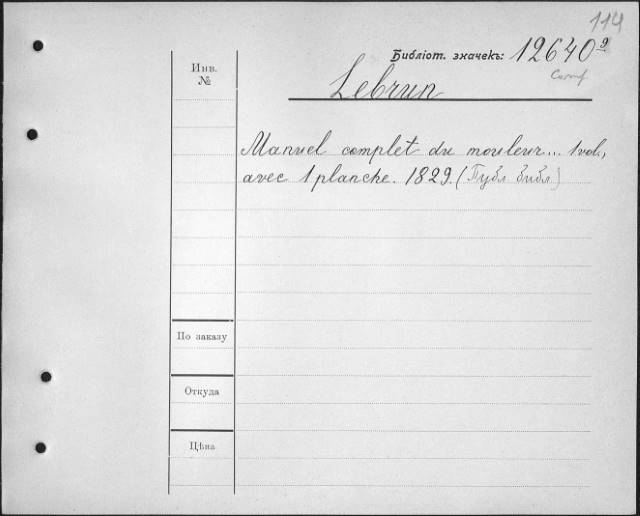 114
Библіот. значекъ: 12640 9
Инв.
№
Lebrun
Manuel complet du mouleur... 1 vol.,
avec 1 planche. 1829. (Публ библ)
По заказу
Откуда
Цѣна